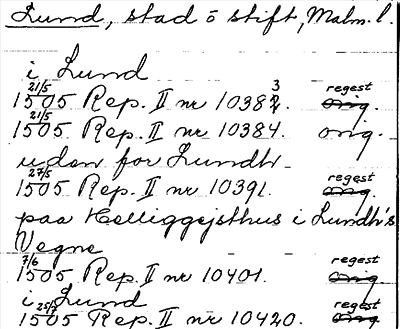 Lund, stad o stift, Malm. l.
i Lund
21/5 1505 Rep. II nr 10383. regest
21/5 1505 Rep. II nr 10384. orig.
udan for Lundh.
27/5 1505 Rep. II nr 10391. regest
paa Helliggejsthus i Lundh's
Vegne
7/6 1505 Rep. II nr 10401. regest
i Lund
25/7 1505 Rep. II nr 10420. regest